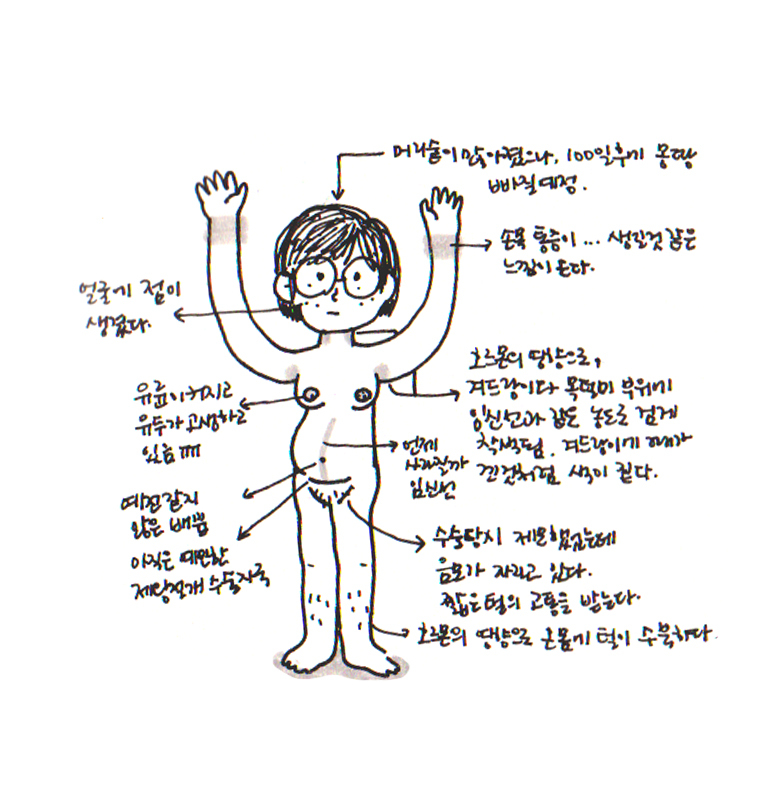 머리숱이 많아졌으나, 100일후기 몽땅
빠질예정.
손목 통증이 ... 생길것 같은
느낌이 든다.
얼굴에 점이
생겼다.
호르몬의 영향으로,
겨드랑이다 목덜미 부위에
임신선과 같은 농도로 검게
착색됨. 겨드랑이에 때가
낀것처럼 색이 짙다.
유륜이 커지고
유두가 고생하고
있음 ㅠㅠ
언제
사라질까
임신선
예전같지
않은 배꼽
아직은 예민한
제왕절개 수술자국
수술당시 제모했었는데
음모가 자라고 있다.
짧은털의 고통을 받는다.
호르몬의 영향으로 온몸에 털이 수북하다.